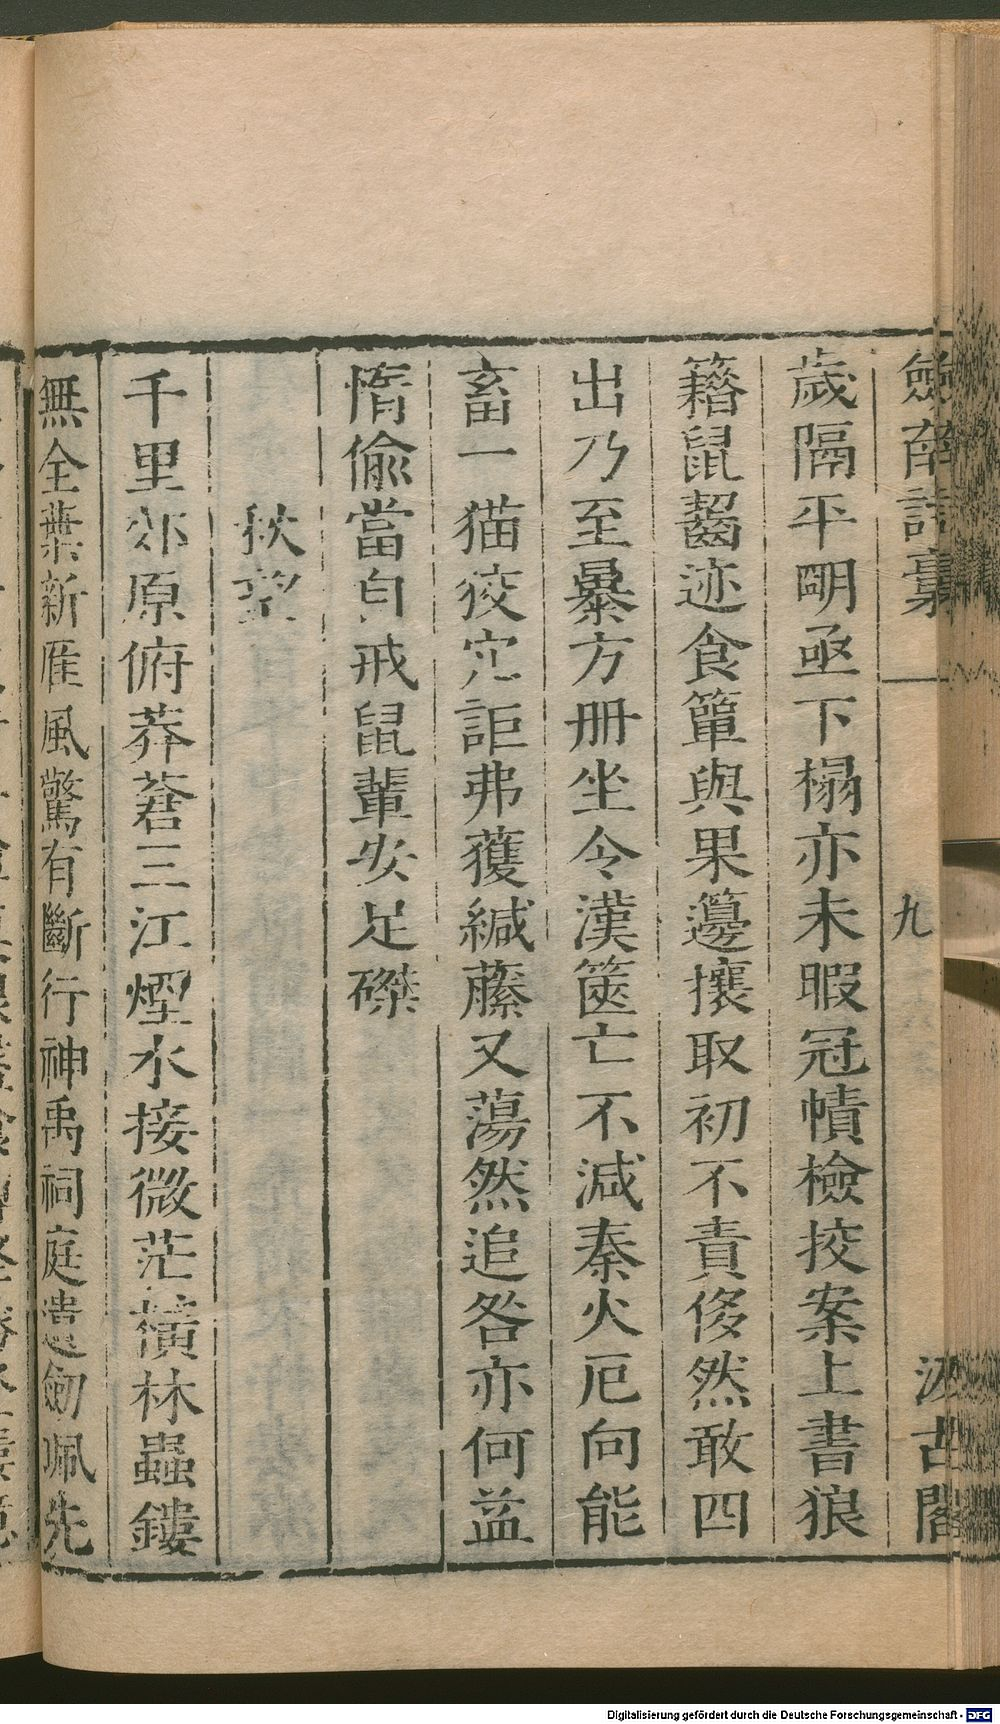 劒南詩稾
九
汲古閣
歲隔平明亟下榻亦未暇冠幘檢挍案上書狼
籍鼠齧迹食簞與果籩攘取初不責侈然敢四
出乃至暴方册坐令漢篋亡不減秦火厄向能
畜一猫狡穴詎弗獲緘縢又蕩然追咎亦何益
惰偸當自戒鼠輩安足磔
秋望
千里郊原俯莽蒼三江煙水接微茫橫林蟲鏤
無全葉新雁風驚有斷行神禹祠庭遺劒珮先
Digitalisierung gefördert durch die Deutsche Forschungsgemeinschaft - DFG